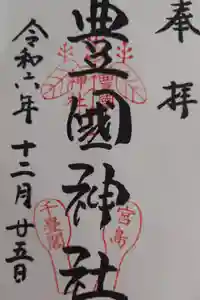 奉拝
豊國神社
令和六年十二月廿五日
宮島
千畳閣